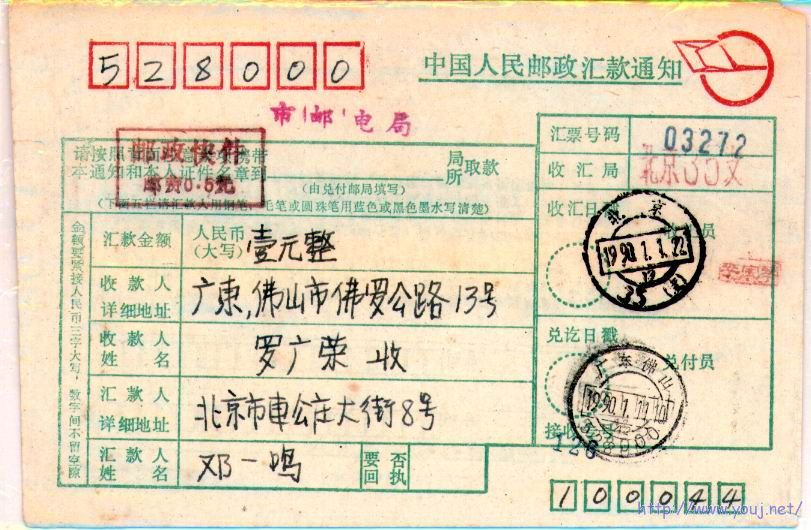 528000
中国人民邮政汇款通知
市邮电局
汇票号码 03272
邮政快件
请按照背面
携带
本通知和本人证件名章到 局所 取款
(由兑付邮局填写)
收汇局
(下面五栏请汇款人用钢笔、毛笔或圆珠笔用蓝色或黑色墨水写清楚)
收汇日
北京
1990.1.3.22
12
35
金额要紧接人民币三字大写,数字间不留空隙
汇款金额 人民币(大写) 壹元整
收款人详细地址 广東,佛山市佛罗公路13号
收款人姓名 罗广荣 收
兑讫日戳 兑付员
广东佛山
1990.1.11.10
528000
汇款人详细地址 北京市車公庄大街8号
接收
126
汇款人姓名 邓一鸣 要回 否执
100044
http://www.youj.net/